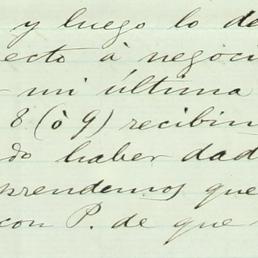 y luego lo de
ecto à negoci
mi última
8 (ò 9) recibim
do haber dad
prendemos que
con P. de que